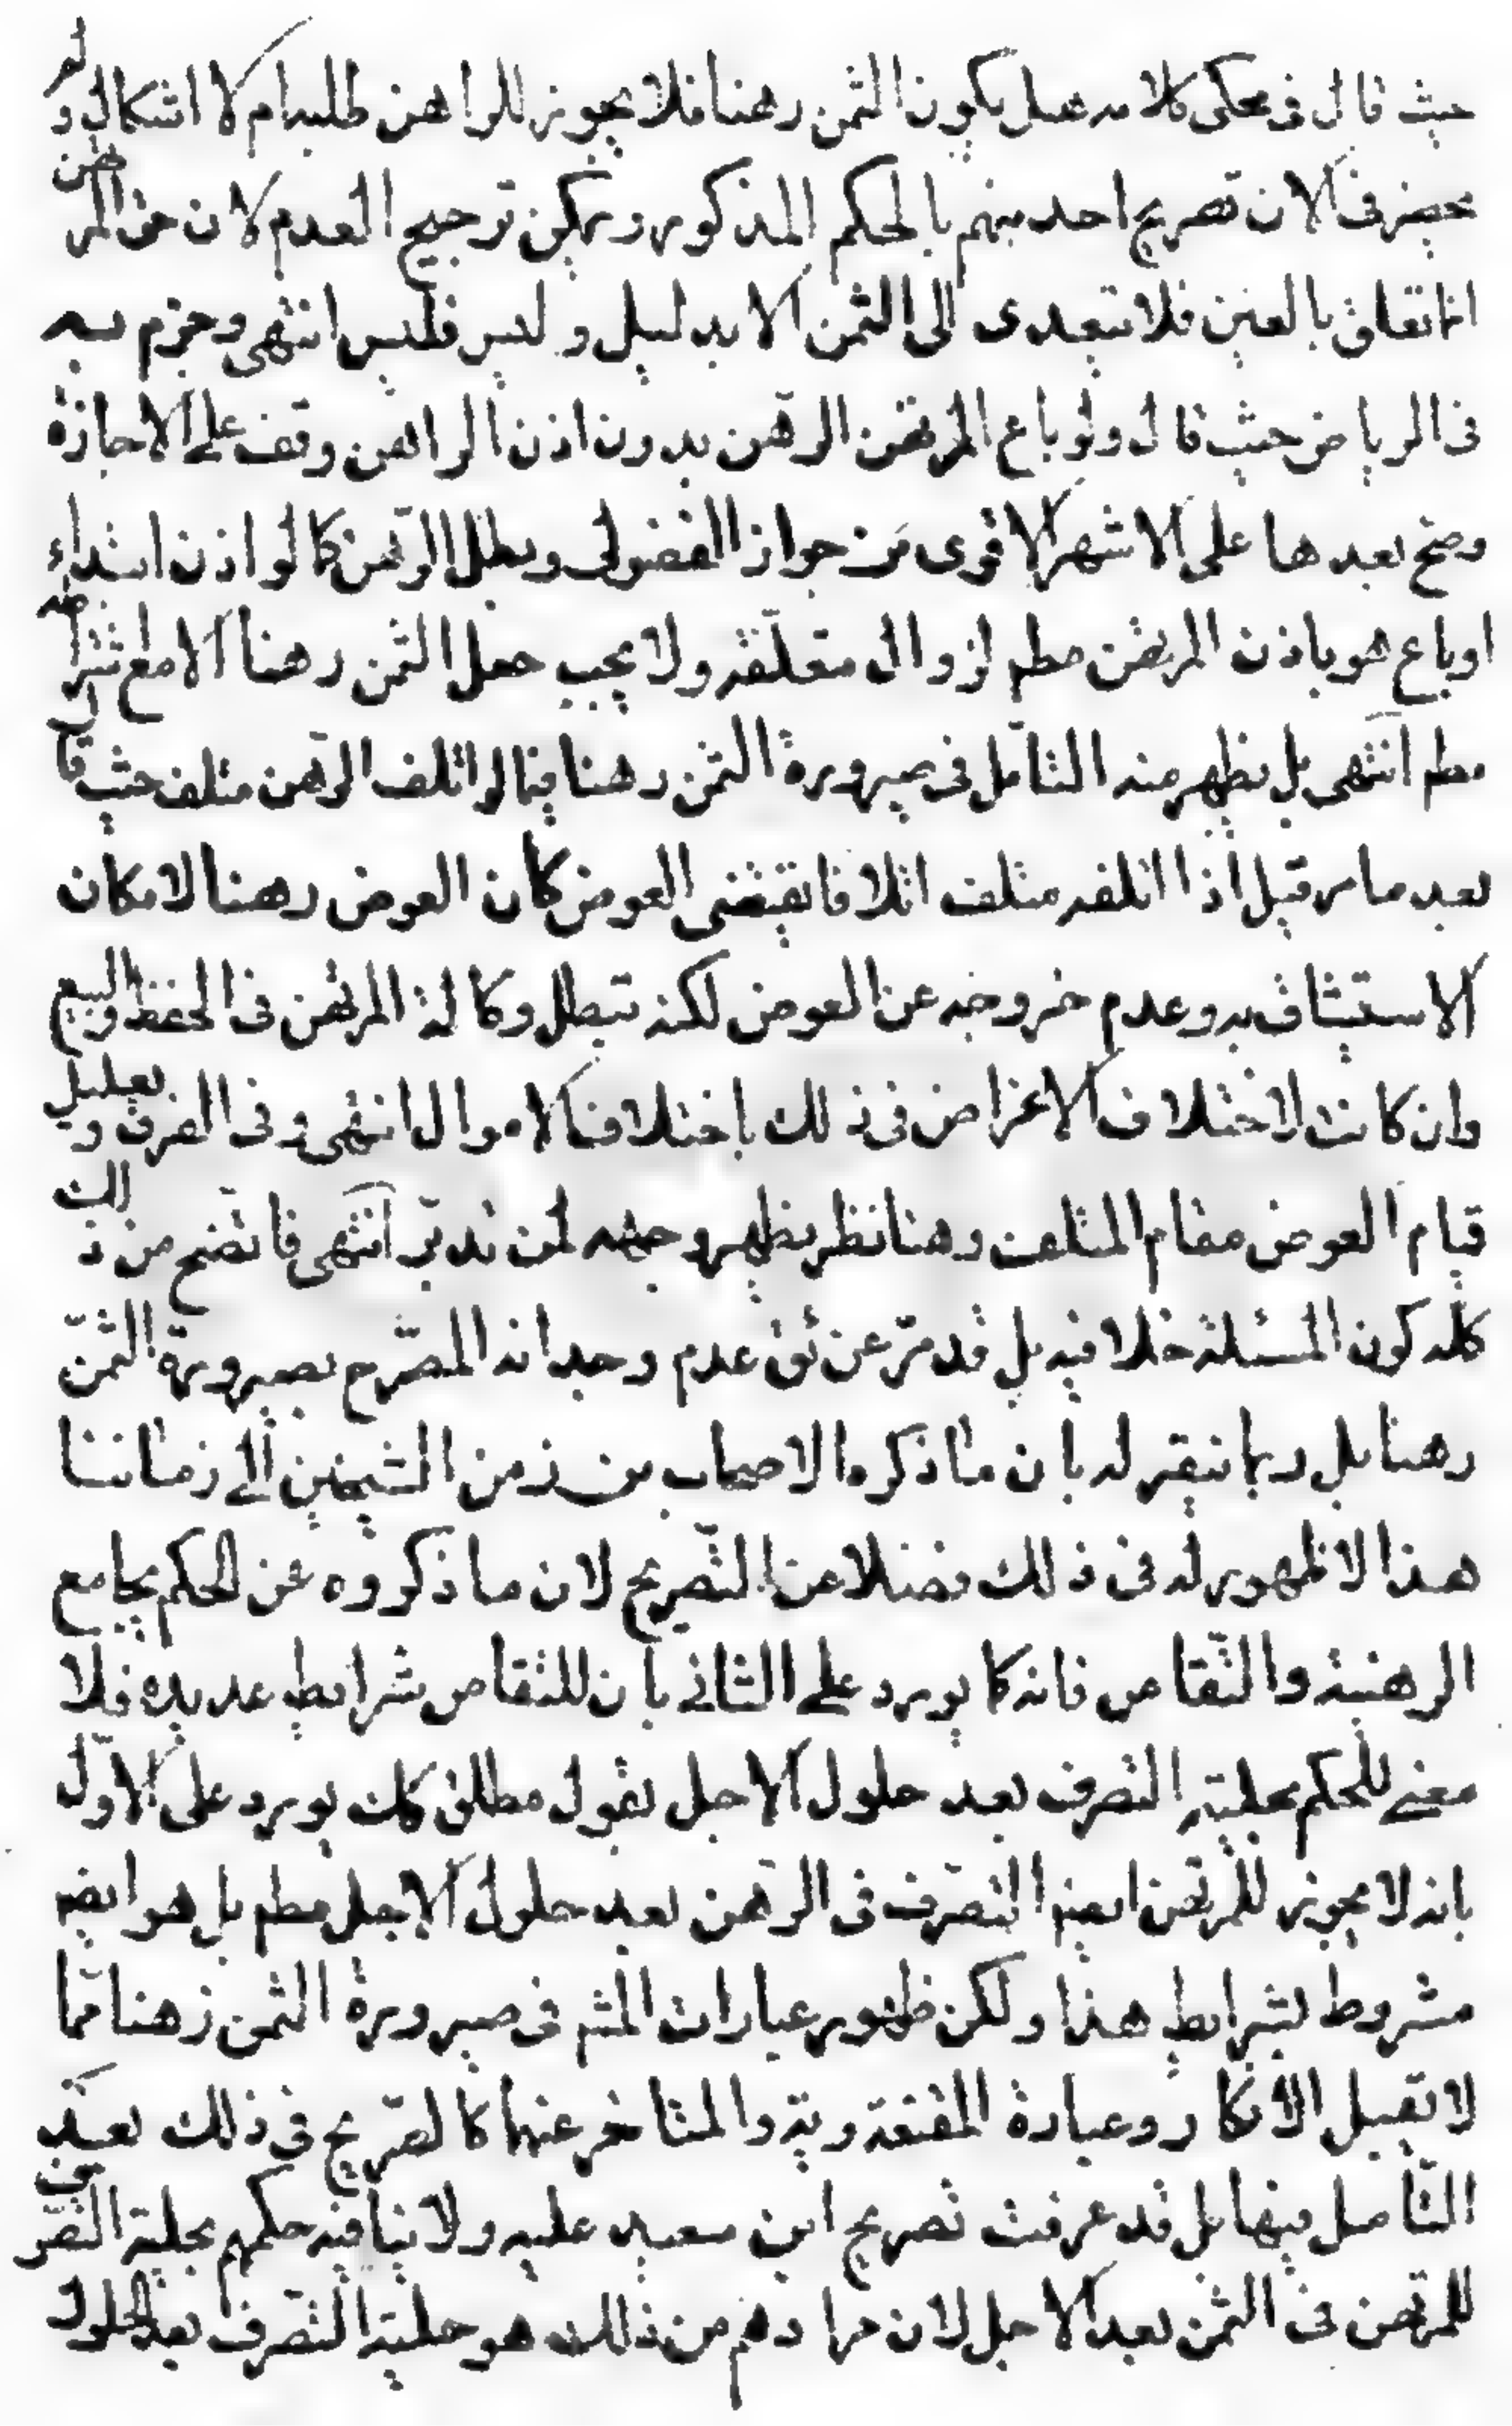 حيث قال فى محكى كلامه هل يكون الثمن رهنا فلا يجوز للراهن طلبه ام لا اشكال ولم
يحضرنى الان تصريح احد منهم بالحكم المذكور ويمكن ترجيح العدم لان حق المرتهن
انما تعلق بالعين فلا يتعدى الى الثمن الا بدليل وليس فليس انتهى وجزم به
فى الرياض حيث قال ولو باع المرتهن الرهن بدون اذن الراهن وقف على الاجازة
وصح بعدها على الاشهر الاقوى من جواز الفضولى وبطل الرهن كما لو اذن ابتداء
او باع هو باذن المرتهن مطم لزوال متعلقه ولا يجب جعل الثمن رهنا الا مع شرطه
مطم انتهى بل يظهر منه التامل فى صيرورة الثمن رهنا فيما لو اتلف الرهن متلف حيث قال
بعد ما مر قيل اذا اتلفه متلف اتلافا يقتضى العوض كان العوض رهنا لامكان
الاستيثاق به وعدم خروجه عن العوض لكنه تبطل وكالة المرتهن فى الحفظ والبيع
وان كانت لاختلاف الاغراض فى ذلك باختلاف الاموال انتهى وفى الفرق وتعليل
قيام العوض مقام المتلف وهنا نظر يظهر وجهه لمن تدبر انتهى فاتضح من ذلك
كله كون المسئلة خلافية بل قد مر عن ئق عدم وجدانه المصرح بصيرورة الثمن
رهنا بل ربما ينتصر له بان ما ذكره الاصحاب من زمن الشيخين الى زماننا
هذا لا ظهور له فى ذلك فضلا عن التصريح لان ما ذكروه عن الحكم يجامع
الرهنية والتقاص فانه كما يورد على الثانى بان للتقاص شرايط عديده فلا
معنى للحكم بحلية التصرف بعد حلول الاجل بقول مطلق كك يورد على الاول
بانه لا يجوز للمرتهن ايضا التصرف فى الرهن بعد حلول الاجل مطم بل هو ايضا
مشروط بشرايط هذا ولكن ظهور عبارات المشهور فى صيرورة الثمن رهنا مما
لا تقبل الانكار وعبارة المقنعة وية والمتاخر عنهما كالصريح فى ذلك بعد
التامل فيها بل قد عرفت تصريح ابن سعيد عليه ولا ينافيه حكمهم بحلية التصرف
للمرتهن فى الثمن بعد الاجل لان مرادهم من ذلك هو حلية التصرف بعد الحلول